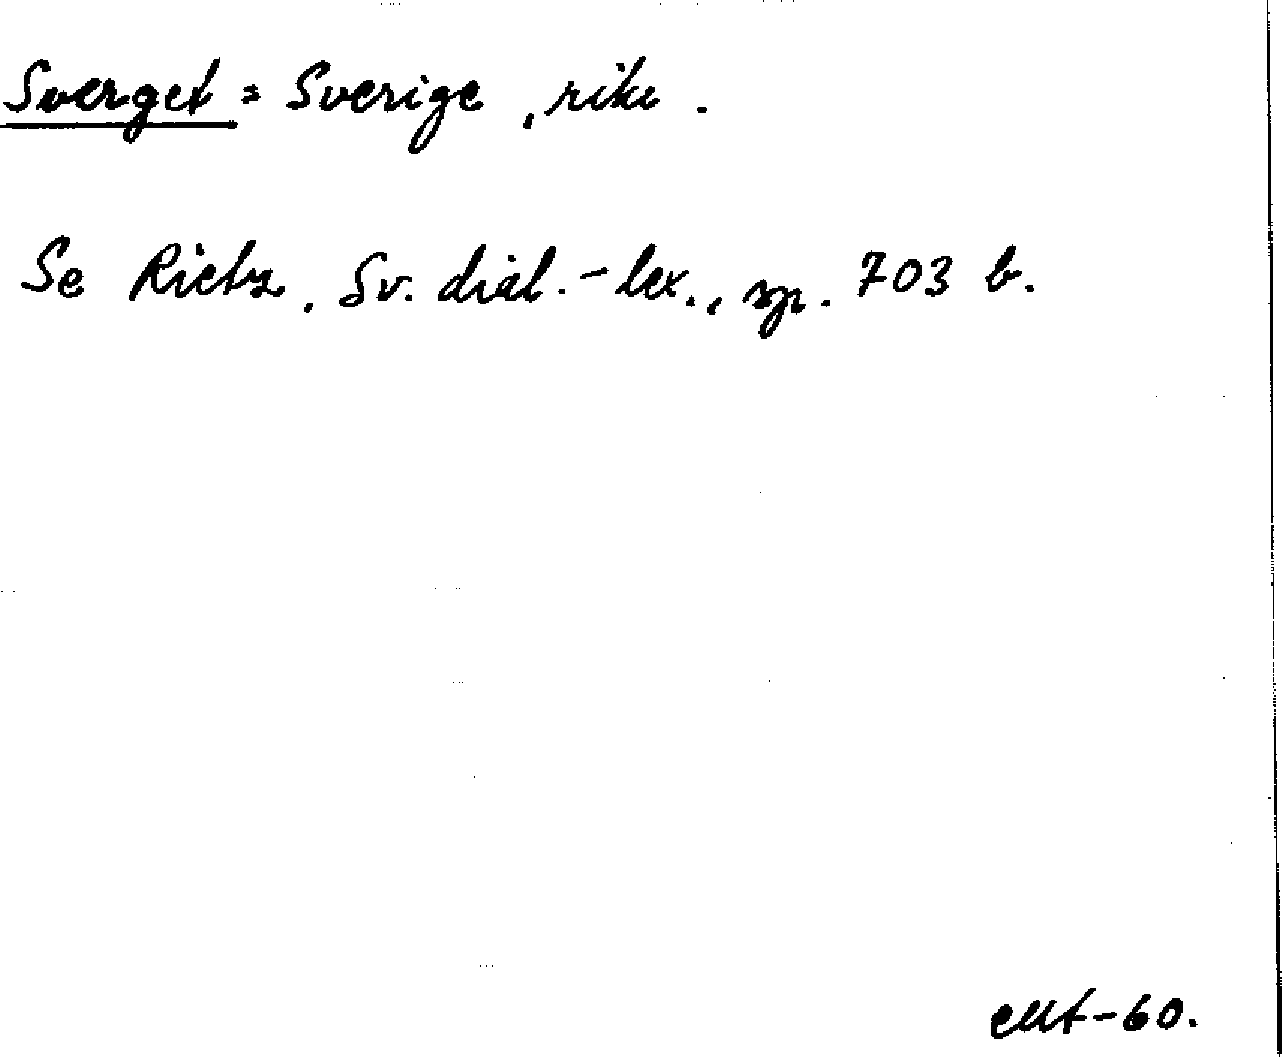 Sverget = Sverige, rike.
Se Rietz, Sv. dial.-lex., sp. 703 b.
-60.